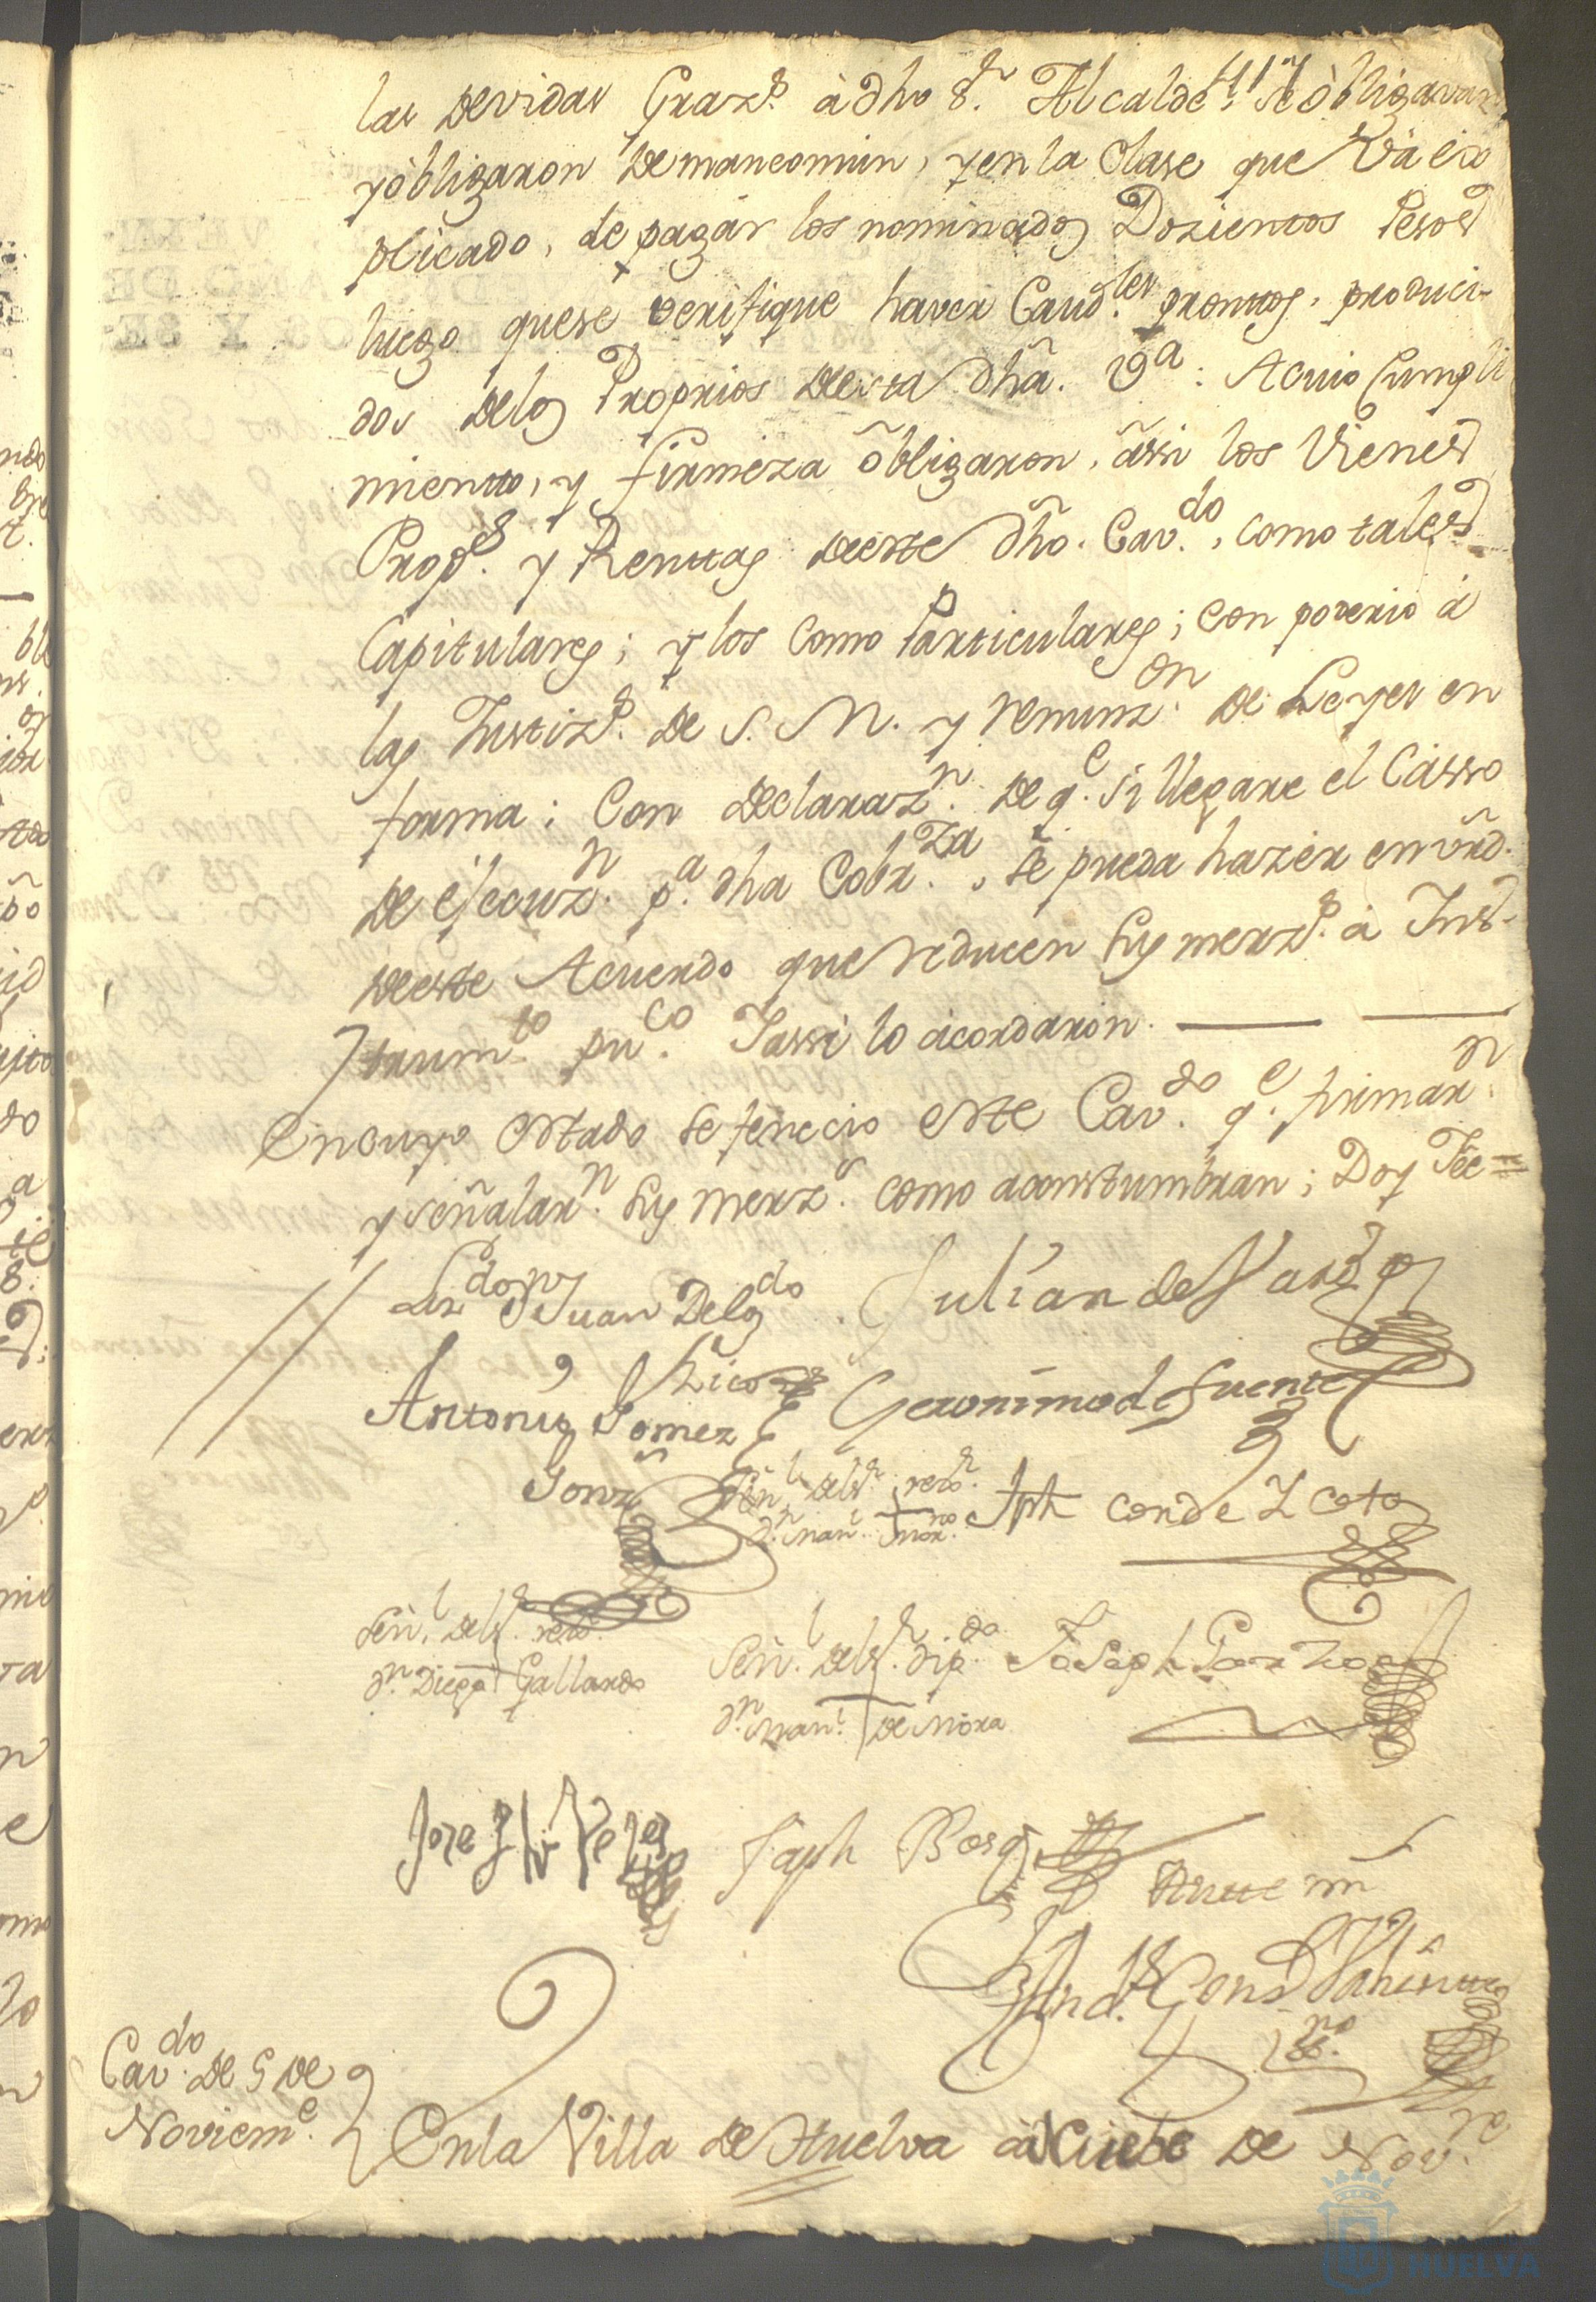 las devidas Graz.s à dho S.r Alcalde; se òbligavan
y òbligaron de mancomun, y en la Clase que và ex
plicado, de pagár los nominados Dozientos Pesos
luego que se verifique haver Caud.les promtos, produci-
dos de los Proprios de esta dhã. V.a: A cuio Cumpli
miento, y firmeza õbligaron, ãssi los Vienes
Prop.s y Renttas de este dhõ. Cav.do, como tales
Capitulares; y los como Particulares; con poderio à
las Justiz.s de S. M. y renunz.on de Leyes en
forma; Con declaraz.n de q.e si llegare el Casso
de ejecuz.n p.a dha Cobr.za, se pueda hazer en vrd.
de este Acuerdo que reducen sus merz.s à Ins-
trum.to pu.co Y assi lo acordaron.
En cuyo estado se feneció este Cav.do q.e firmar.n
y señalar.n sus merz.s como acostumbran; Doy Fee=
Liz.do Dn Juan Delg.do Julian de
Antonio Gomez Geronimo de fuente
Señ.l del S.r rexo.r Jph conde Y coto
D.n Man.l
Señ.l del S.r rexo.r
D.n Diego Gallardo
Señ.l del S.r dip.do Joseph
D.n Man.l de Mora
Jose Velez Jsph
Antte mi
Cav.do de 5 de
Noviem.e
En la Villa de Huelva à de Nov.re
HUELVA